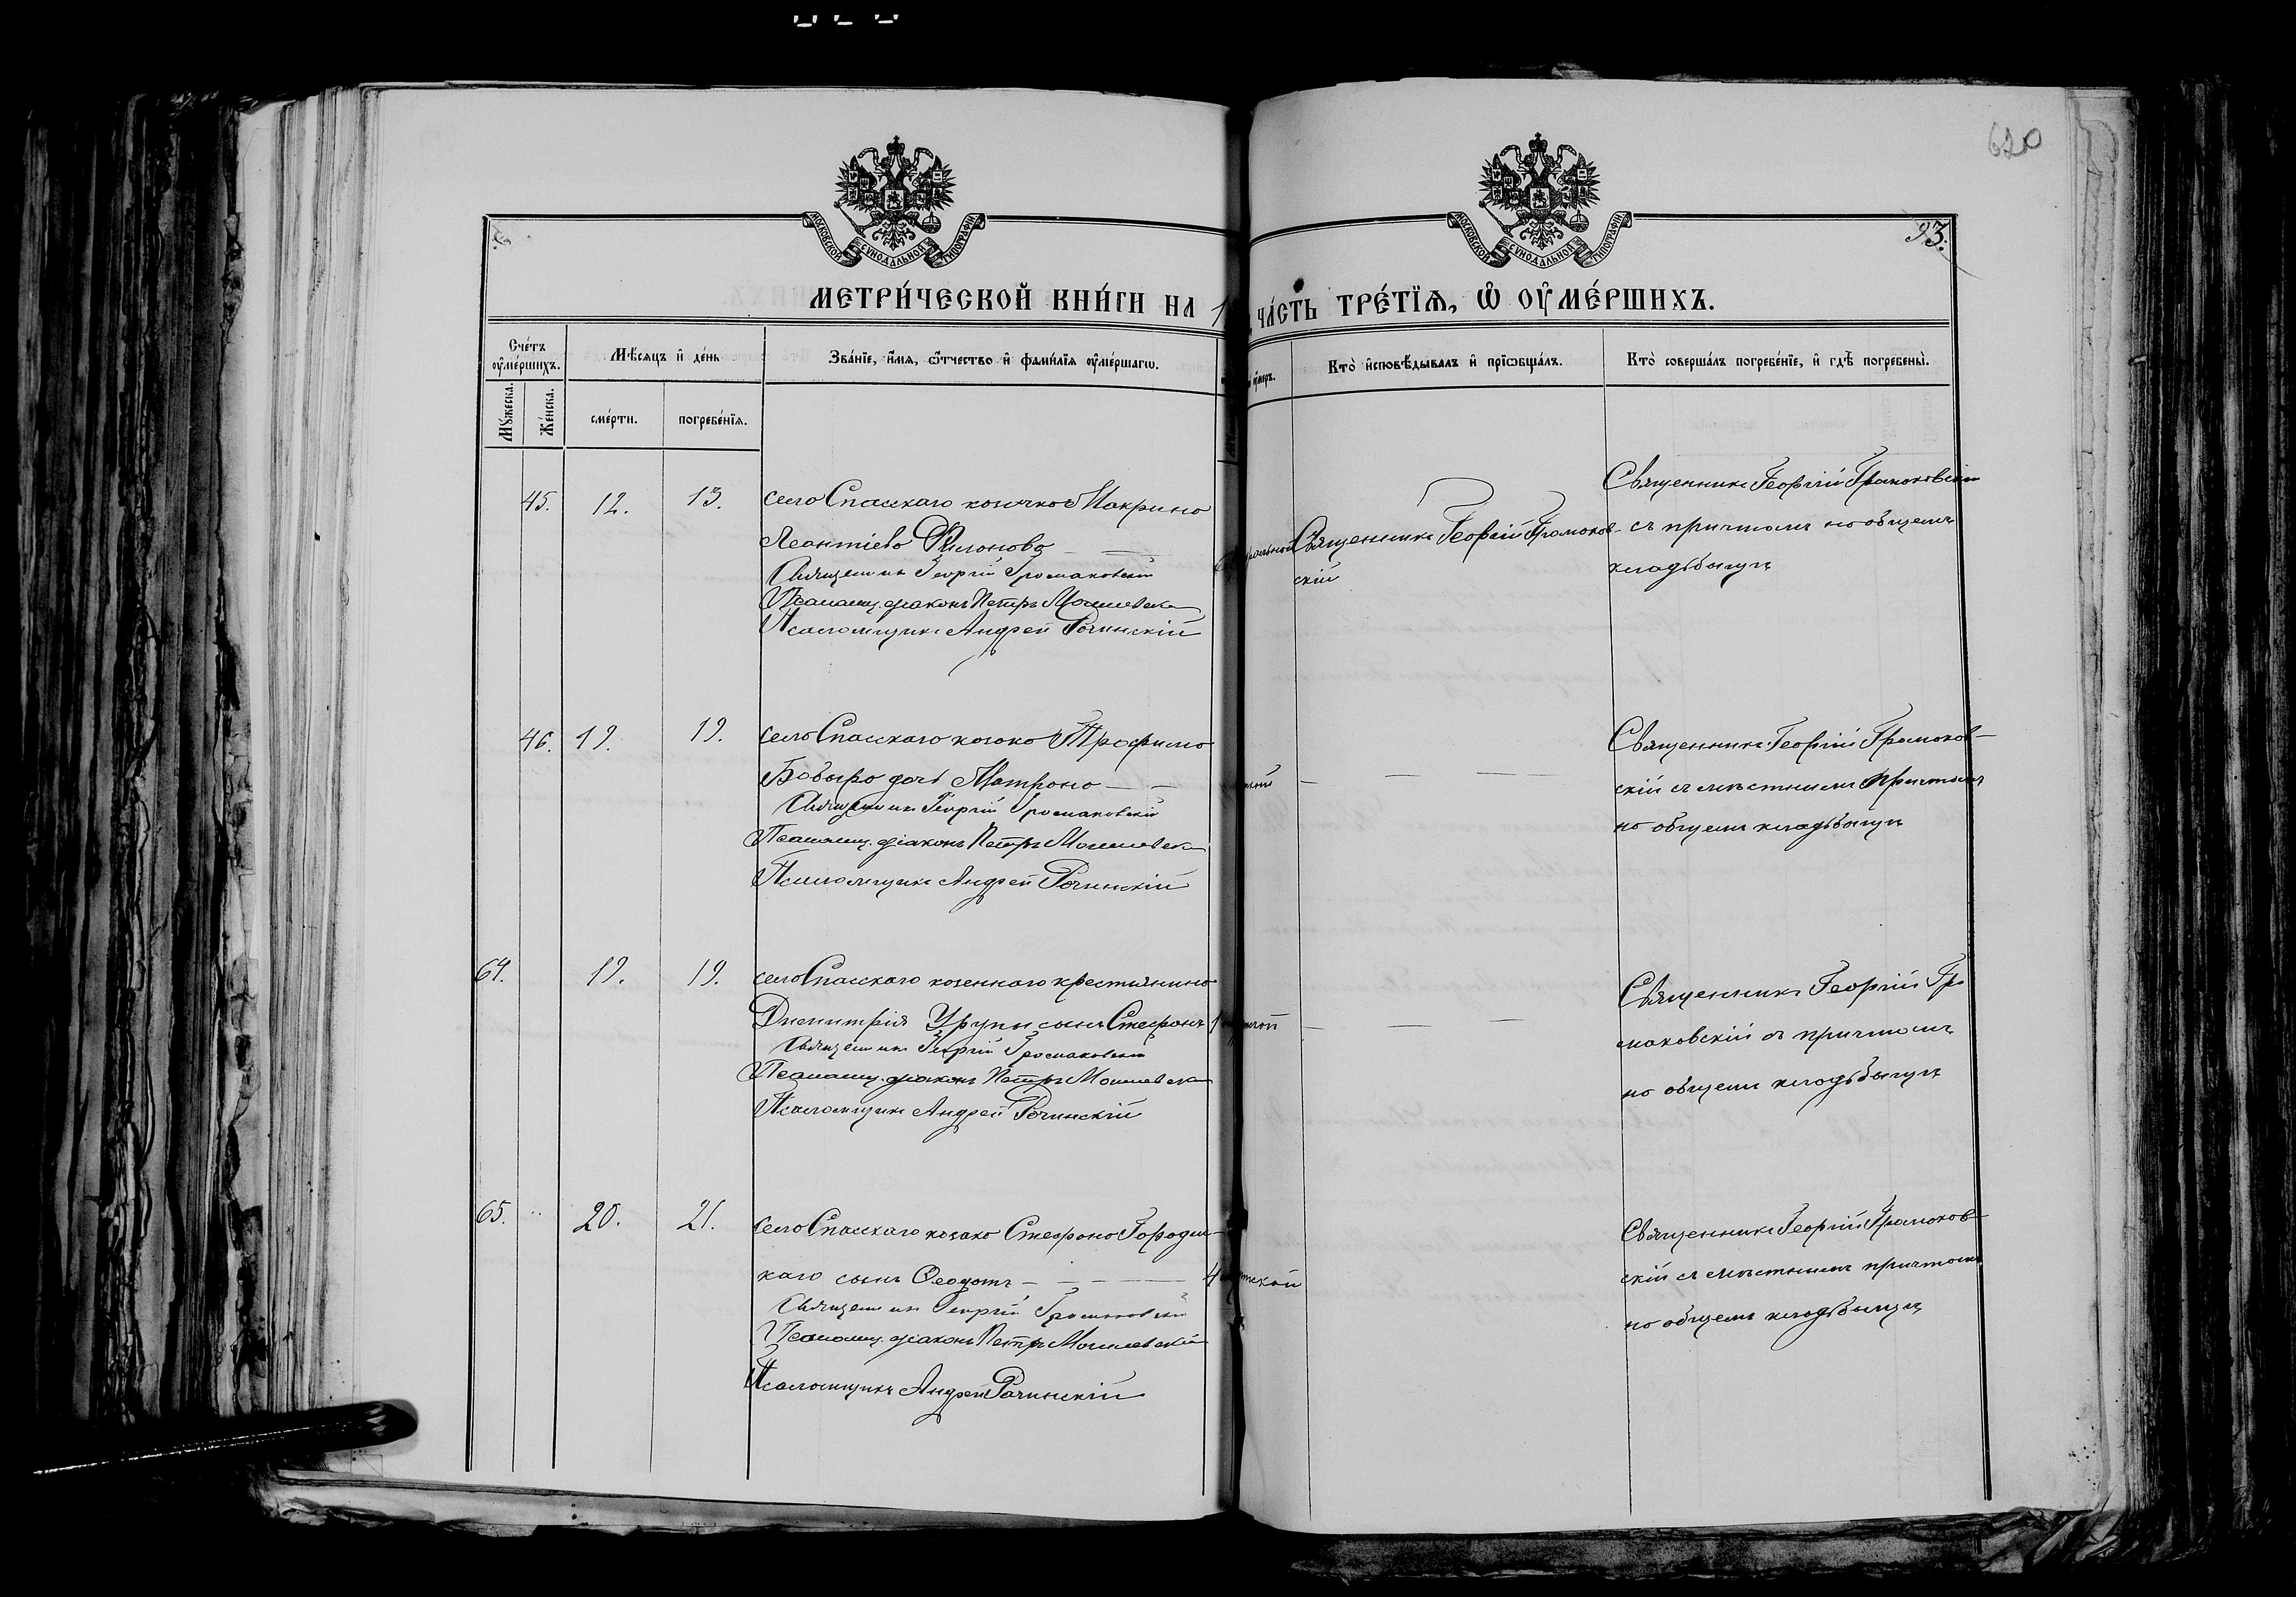 620
93.
МОСКОВСКОЙ СУНОДАЛЬНОЙ ТИПОГРАФІИ
МОСКОВСКОЙ СУНОДАЛЬНОЙ ТИПОГРАФІИ
МЕТРИ́ЧЕСКОЙ КНИ́ГИ НА 1
ЧА́СТЬ ТРЕ́ТЇѦ, Ѡ҆ ОУ҆МЕ́РШИХЪ.
Счéтъ оу҆мéршихъ.
Мѣ́сяцъ и҆ дéнь
Звáнїе, и҆́мя, ѻ҆́тчество и҆ фами́лїя оу҆мéршагѡ.
Ктò и҆сповѣ́дывалъ и҆ прїѡбщáлъ.
Ктò совершáлъ погребéнїе, и҆ гдѣ̀ погребены̀.
Мꙋ́жеска.
Жéнска.
смéрти.
погребéнїя.
45. 12. 13. село Спасскаго козачка Макрина
Леонтіева Филонова
Священникъ Георгій Громаковскій
Псаломщ. діаконъ Петръ Могилевскій
Псаломщикъ Андрей Рачинскій
Священникъ Георгій Громаков-
скій
Священникъ Георгій Громаковскій
съ причтомъ на общемъ
кладбищѣ
46. 19. 19. село Спасскаго козака Трофима
Бобыра дочь Матрона
Священникъ Георгій Громаковскій
Псаломщ. діаконъ Петръ Могилевскій
Псаломщикъ Андрей Рачинскій
Священникъ Георгій Громаков-
скій съ мѣстнымъ причтомъ
на общемъ кладбищѣ
64. 19. 19. село Спасскаго козеннаго крестьянина
Димитрія Урупы сынъ Стефанъ 1
Священникъ Георгій Громаковскій
Псаломщ. діаконъ Петръ Могилевскій
Псаломщикъ Андрей Рачинскій
Священникъ Георгій Гро
маковскій съ причтомъ
на общемъ кладбищѣ
65. 20. 21. село Спасскаго козака Стефана Городис-
каго сынъ Ѳеодотъ 4
Священникъ Георгій Громаковскій
Псаломщ. діаконъ Петръ Могилевскій
Псаломщикъ Андрей Рачинскій
Священникъ Георгій Громаков-
скій съ мѣстнымъ причтомъ
на общемъ кладбищѣ